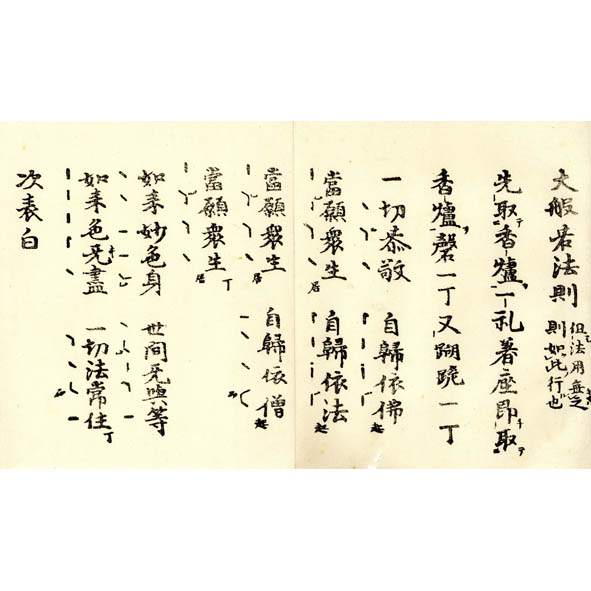 大般若法則 但法用無之則如此行也
先取香爐一礼着座即取
香爐磬一丁又踟跪一丁
一切恭敬 自歸依佛 起
當願衆生 居 自歸依法 起
當願衆生 居 自歸依僧 起
當願衆生 居 丁
如来妙色身 世间无與等
如来色无盡 一切法常住 丁
次表白